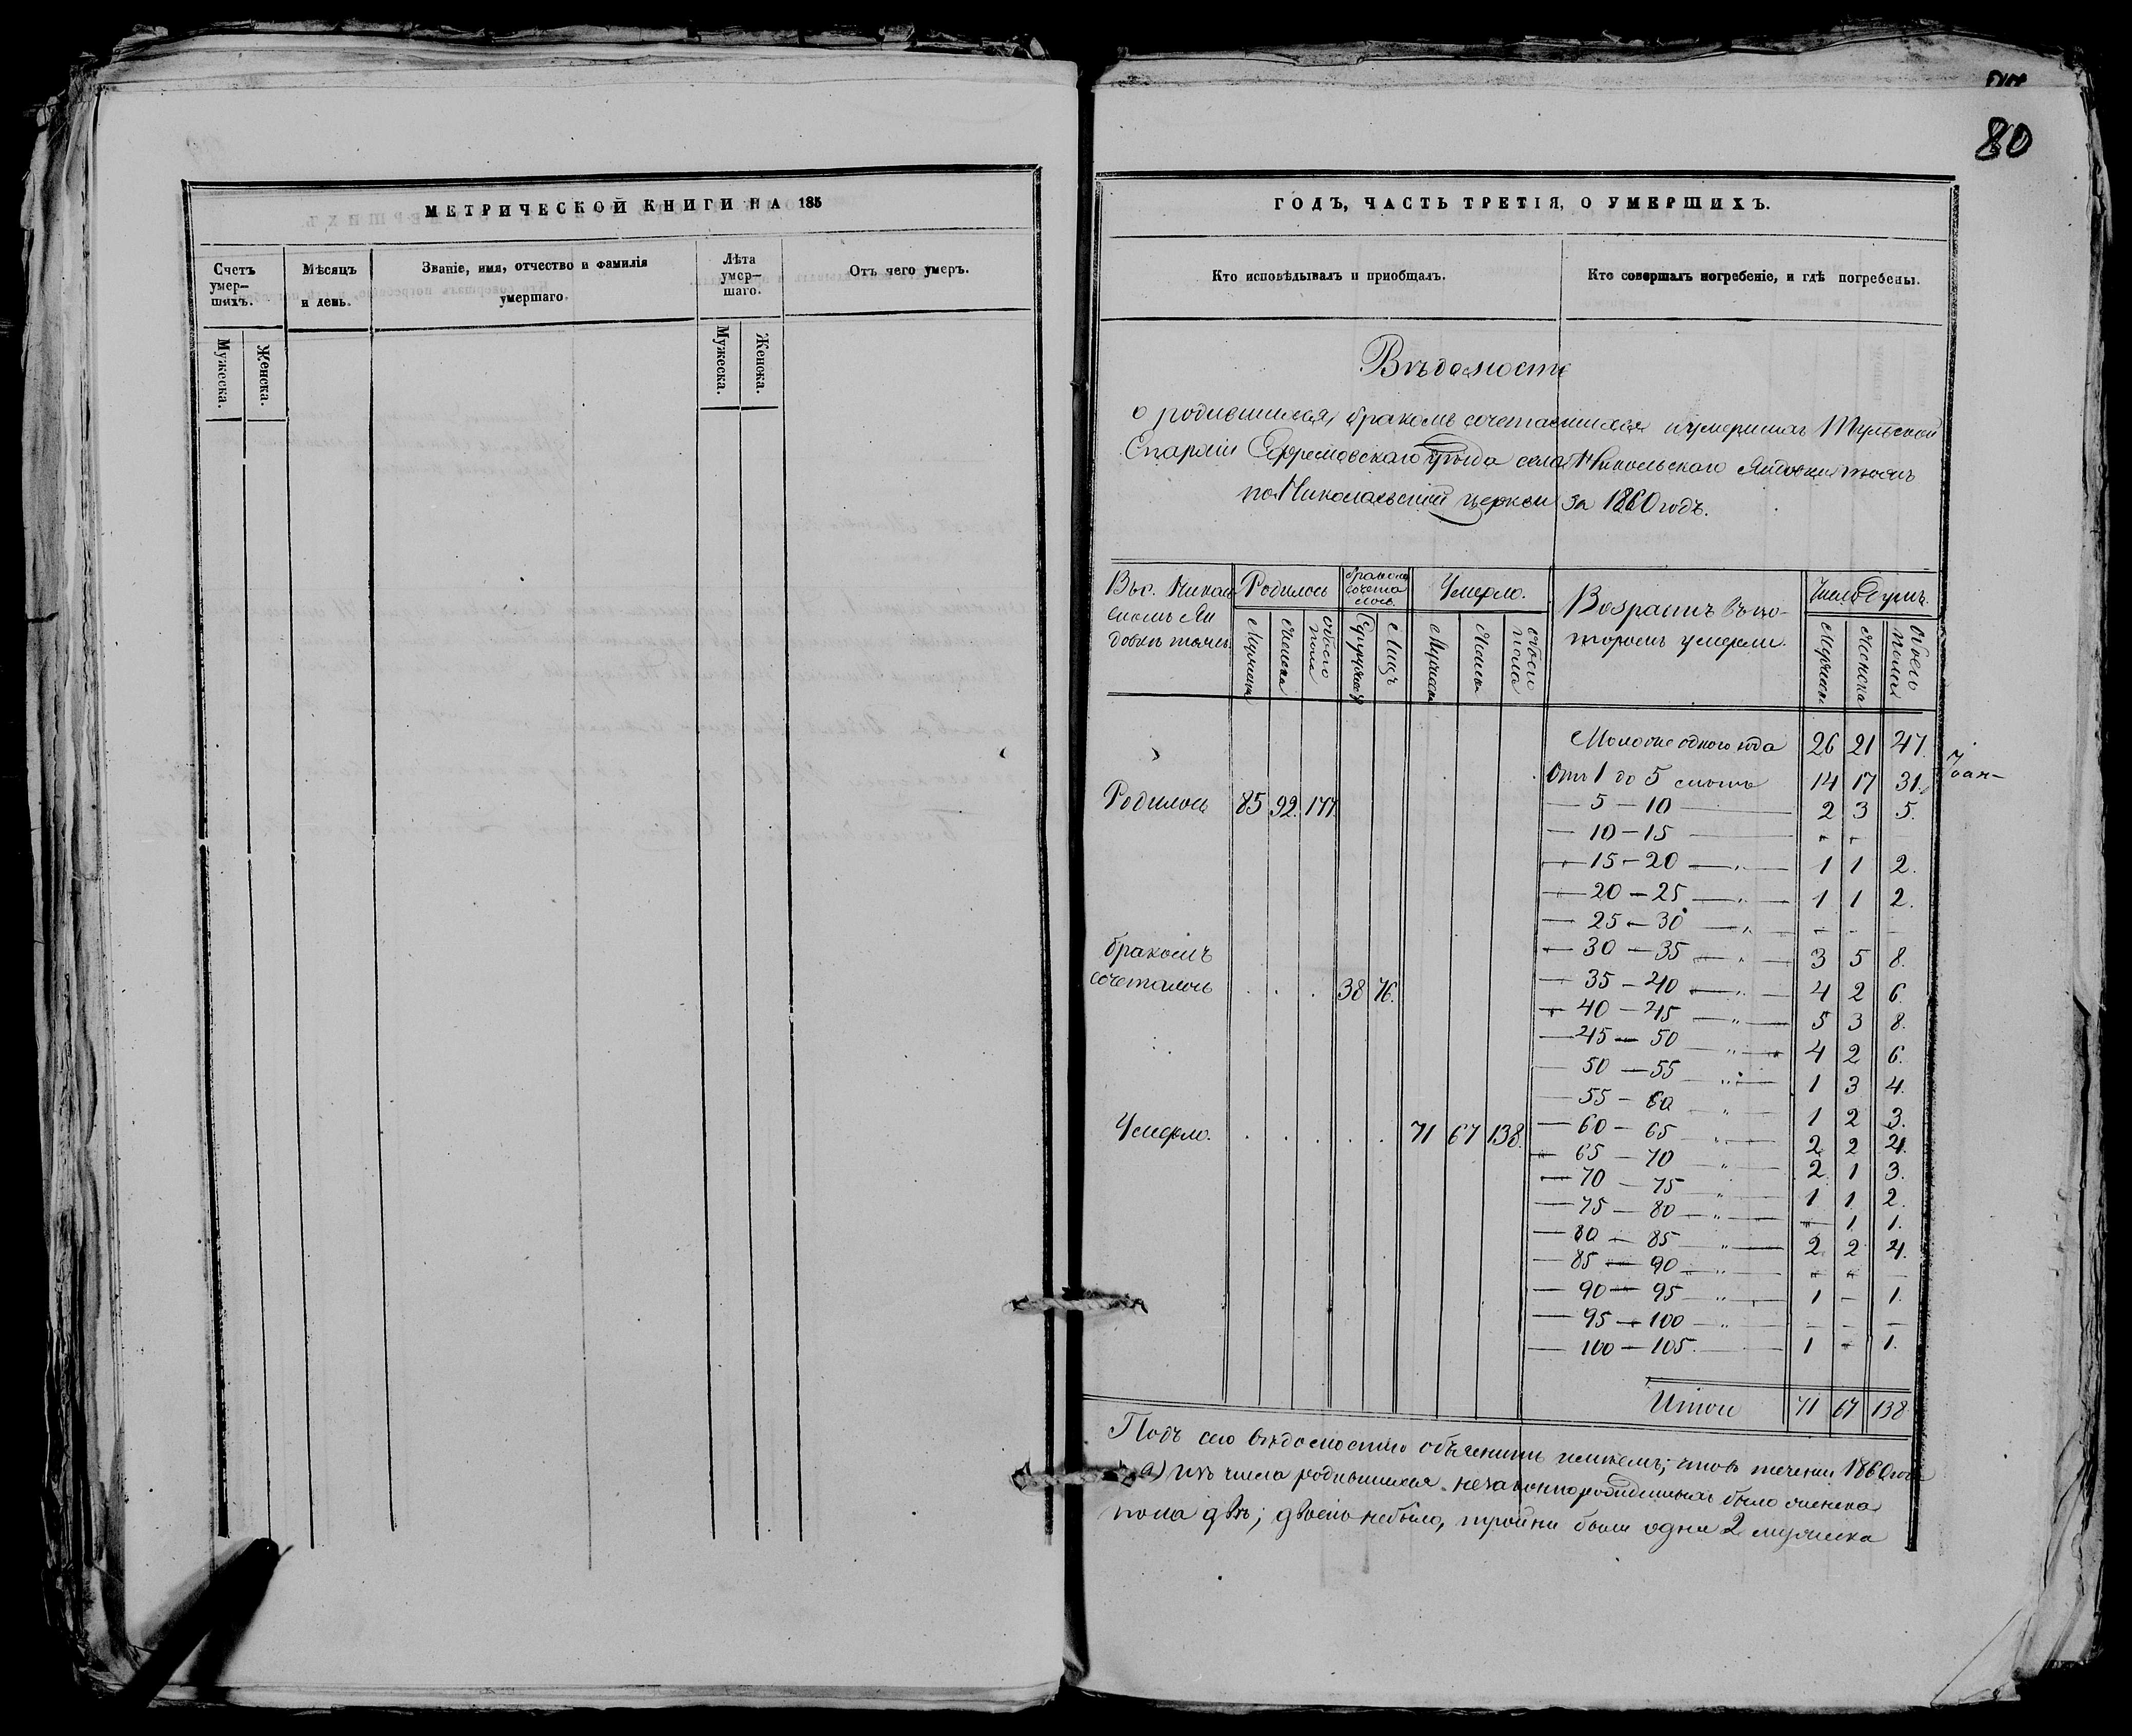 80
МЕТРИЧЕСКОЙ КНИГИ НА 185
Счетъ умер-шихъ.
Мѣсяцъ и день.
Званіе, имя, отчество и фамилія умершаго.
Лѣта умер-шаго.
Отъ чего умеръ.
Мужеска.
Женска.
Мужеска.
Женска.
ГОДЪ, ЧАСТЬ ТРЕТІЯ, О УМЕРШИХЪ.
Кто исповѣдывалъ и пріобщалъ.
Кто совершалъ погребеніе, и гдѣ погребены.
Вѣдомость
о родившихся, бракомъ сочетавшихся и умершихъ Тульской
Епархіи Ефремовскаго уѣзда села Никольскаго Яндовки тожъ
по Николаевской церкви за 1860 годъ.
Въ с. Николь
скомъ Ян
довкѣ тожъ.
Родилось
бракомъ сочета лось.
Умерло.
Возрастъ въ ко-
торомъ умерли.
Число душъ.
Мужеска
Женска
обоего пола
Супружествъ
Лицъ
Мужеска
Женска
обоего пола
Мужеска
Женска
обоего пола
Моложе одного года 26 21 47.
Отъ 1 до 5 лѣтъ 14 17 31.
Родилось 85 92. 177.
— 5 — 10 — 2 3 5.
— 10 — 15 — " "
— 15 — 20 — " — 1 1 2.
— 20 — 25 — " — 1 1 2.
— 25 — 30 — " — - - -
бракомъ
— 30 — 35 — " — 3 5 8.
сочеталось . . . 38 76.
— 35 — 40 — " — 4 2 6.
— 40 — 45 — " — 5 3 8.
— 45 — 50 — " — 4 2 6.
— 50 — 55 — " — 1 3 4.
— 55 — 60 — " — 1 2 3.
Умерло. . . . . . 71 67 138.
— 60 — 65 — " — 2 2 4.
— 65 — 70 — " — 2 1 3.
— 70 — 75 — " — 1 1 2.
— 75 — 80 — " — " 1 1.
— 80 — 85 — " — 2 2 4.
— 85 — 90 — " — " " —
— 90 — 95 — " — 1 — 1.
— 95 — 100 — " — - - -
— 100 — 105. — 1 - 1.
Итого 71 67 138.
Подъ сею вѣдомостію объяснить
что въ теченіи 1860 года
а) изъ числа родившихся незаконнорожденныхъ было женска
пола двѣ; двоень небыло, тройни были одни 2 мужеска